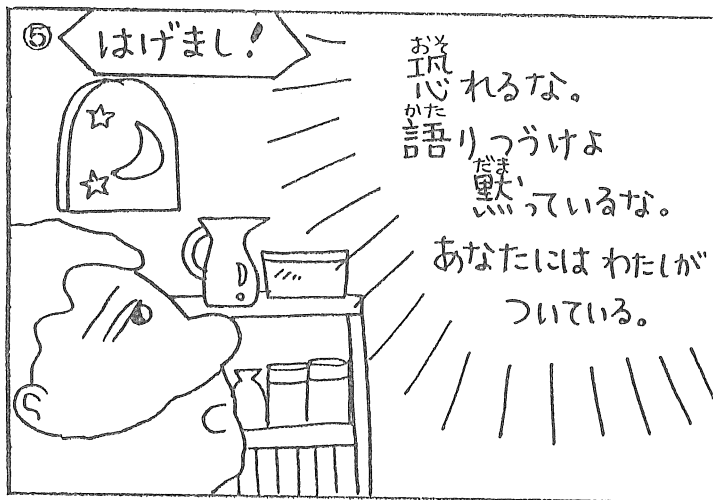 ⑤ はげまし!
恐れるな。
語りつづけよ
黙っているな。
あなたには わたしが
ついている。